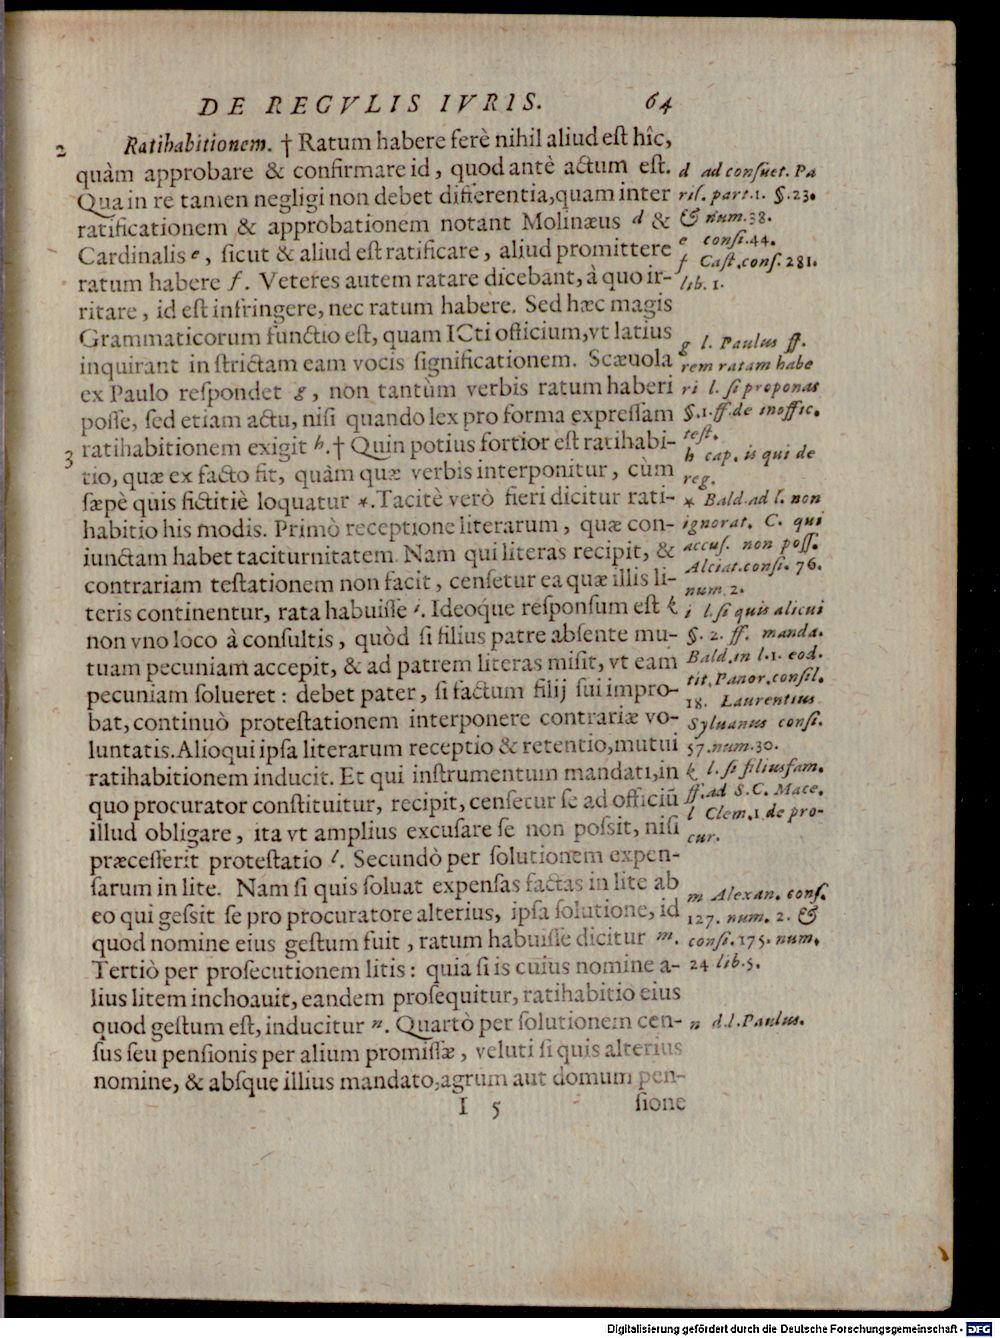 DE REGVLIS IVRIS. 64
2 Ratihabitionem. † Ratum habere ferè nihil aliud est hîc,
quàm approbare & confirmare id, quod antè actum est.
Qua in re tamen negligi non debet differentia, quam inter
ratificationem & approbationem notant Molinæus d &
Cardinalis e, sicut & aliud est ratificare, aliud promittere
ratum habere f. Veteres autem ratare dicebant, à quo ir-
ritare, id est infringere, nec ratum habere. Sed hæc magis
Grammaticorum functio est, quam ICti officium, vt latius
inquirant in strictam eam vocis significationem. Scæuola
ex Paulo respondet g, non tantùm verbis ratum haberi
posse, sed etiam actu, nisi quando lex pro forma expressam
ratihabitionem exigit h. † Quin potius fortior est ratihabi-
3 tio, quæ ex facto fit, quàm quæ verbis interponitur, cùm
sæpè quis fictitiè loquatur *. Tacitè verò fieri dicitur rati-
habitio his modis. Primò receptione literarum, quæ con-
iunctam habet taciturnitatem. Nam qui literas recipit, &
contrariam testationem non facit, censetur ea quæ illis li-
teris continentur, rata habuisse i. Ideoque responsum est k
non vno loco à consultis, quòd si filius patre absente mu-
tuam pecuniam accepit, & ad patrem literas misit, vt eam
pecuniam solueret: debet pater, si factum filij sui impro-
bat, continuò protestationem interponere contrariæ vo-
luntatis. Alioqui ipsa literarum receptio & retentio, mutui
ratihabitionem inducit. Et qui instrumentum mandati, in
quo procurator constituitur, recipit, censetur se ad officiū
illud obligare, ita vt amplius excusare se non possit, nisi
præcesserit protestatio l. Secundò per solutionem expen-
sarum in lite. Nam si quis soluat expensas factas in lite ab
eo qui gessit se pro procuratore alterius, ipsa solutione, id
quod nomine eius gestum fuit, ratum habuisse dicitur m.
Tertiò per prosecutionem litis: quia si is cuius nomine a-
lius litem inchoauit, eandem prosequitur, ratihabitio eius
quod gestum est, inducitur n. Quartò per solutionem cen-
sus seu pensionis per alium promissæ, veluti si quis alterius
nomine, & absque illius mandato, agrum aut domum pen-
I 5 sione
d ad consuet. Pa
ris. part. 1. §. 23.
& num. 38.
e consi. 44.
f Cast. cons. 281.
lib. 1.
g l. Paulus ff.
rem ratam habe
ri l. si proponas
§. 1. ff. de inoffic.
test.
h cap. is qui de
reg.
* Bald. ad l. non
ignorat. C. qui
accus. non poss.
Alciat. consi. 76.
num. 2.
i l. si quis alicui
§. 2. ff. manda.
Bald. in l. 1. eod.
tit. Panor. consil.
18. Laurentius
Syluanus consi.
57. num. 30.
k l. si filiusfam.
ff. ad S. C. Mace.
l Clem. 1 de pro-
cur.
m Alexan. cons.
127. num. 2. &
consi. 175. num.
24 lib. 5.
n d. l. Paulus.
Digitalisierung gefördert durch die Deutsche Forschungsgemeinschaft - DFG